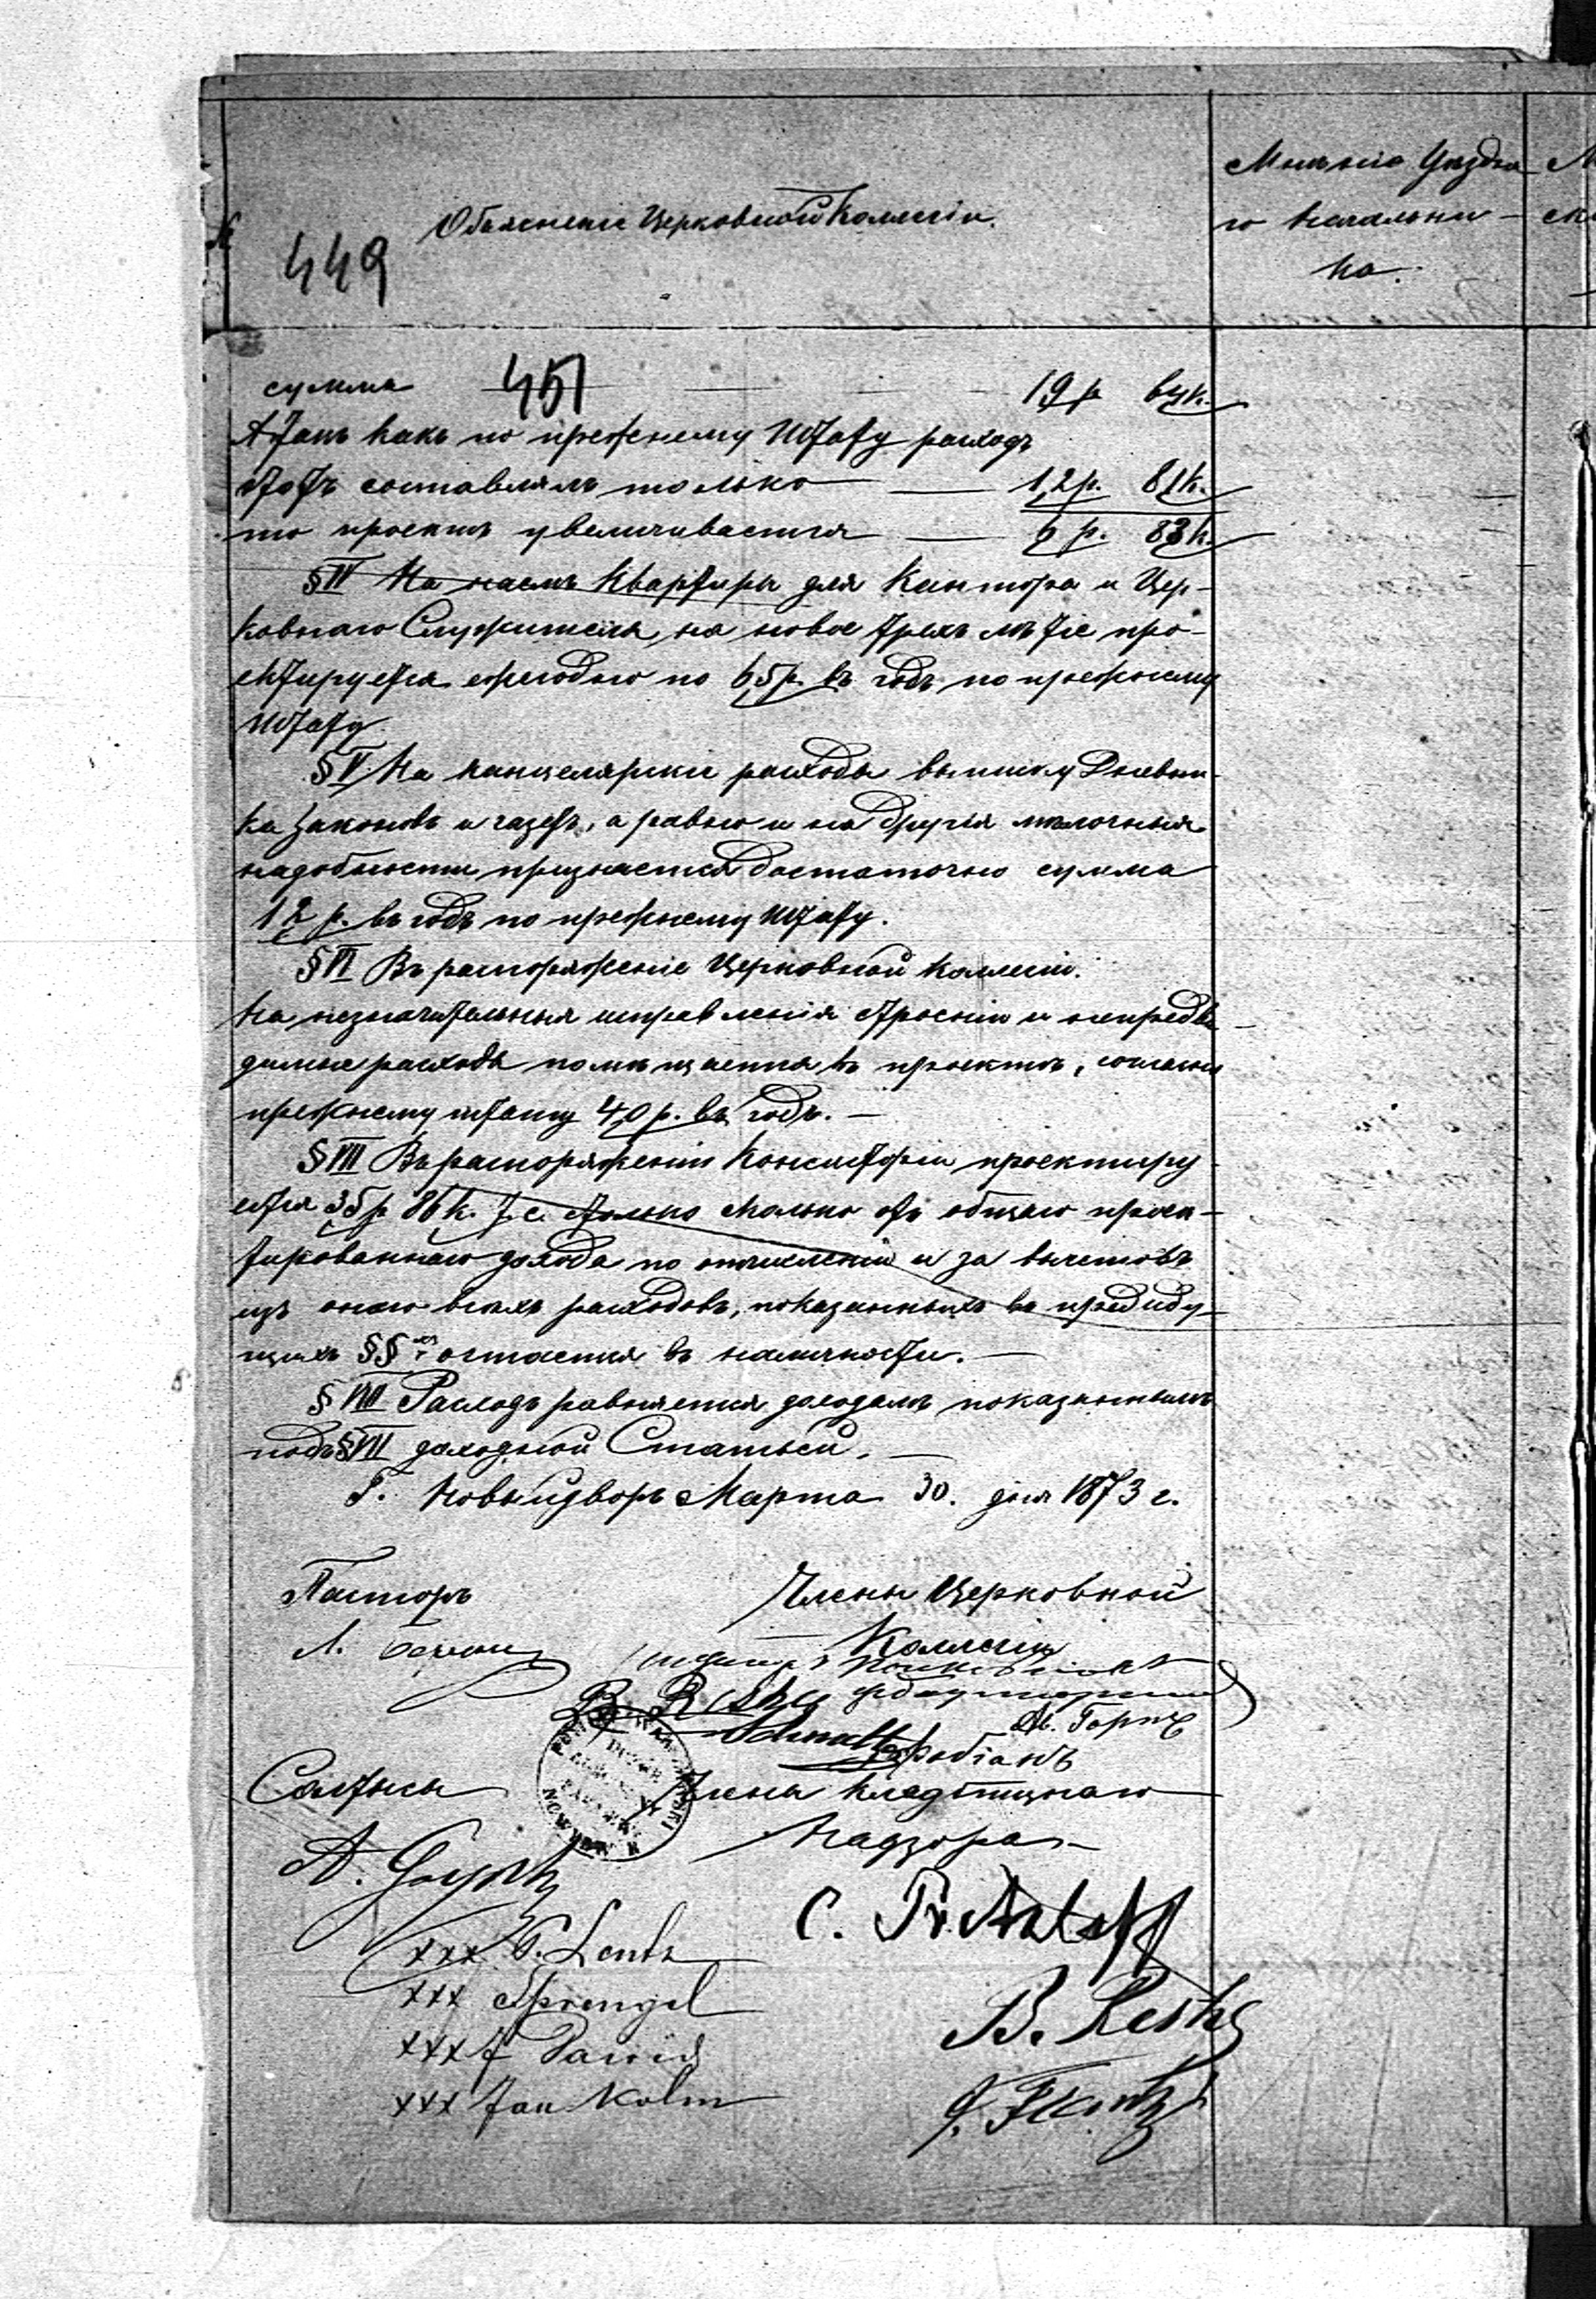 449
Объясненіе Церковной Коллегіи.
Мнѣніе Уѣздна
го Начальни-
ка.
сумма 451 19 р 64 к.
А такъ какъ по прежнему штату расходъ
этотъ составлялъ только — 12 р. 81 к.
то проектъ увеличивается — 6 р. 83 к.
§ IV На наемъ квартиры для Кантора и Цер-
ковнаго Служителя, на новое трехлѣтіе про-
ектируется ежегодно по 65 р. въ годъ по прежнему
штату.
§ V. На канцелярскіе расходы выписку Дневни-
ка законовъ и газетъ, а равно и на другія мѣлочныя
надобности признается достаточно сумма
12 р. въ годъ по прежнему штату.
§ VI Въ распоряженіе Церковной Коллегіи.
На незначительныя исправленія строеній и непредви
димые расходы помѣщается въ проектъ, согласно
прежнему штату 40 р. въ годъ. —
§ VII Въ распоряженіи Консисторіи проектиру
ется 35 р 86 к. т. е. только сколько отъ общаго проек-
тированнаго дохода по отчисленіи и за вычетовъ
изъ онаго всѣхъ расходовъ, показанныхъ въ предиду-
щихъ §§ остается въ наличности. —
§ VIII Расходъ равняется доходамъ показаннымъ
подъ § VII доходной Статьей. —
Г. Новыйдворъ Марта 30. дня 1873 г.
Пасторъ Члены Церковной
Коллегіи
Л.
B. Reske
Schmidt
Ав. Горнъ
Фабіанъ
Солтысы Члены кладбищнаго
Надзора
А.
C.
xxx Lentz
xxx Sprengel
B. Reske
xxx J
xxx Jan Kolm